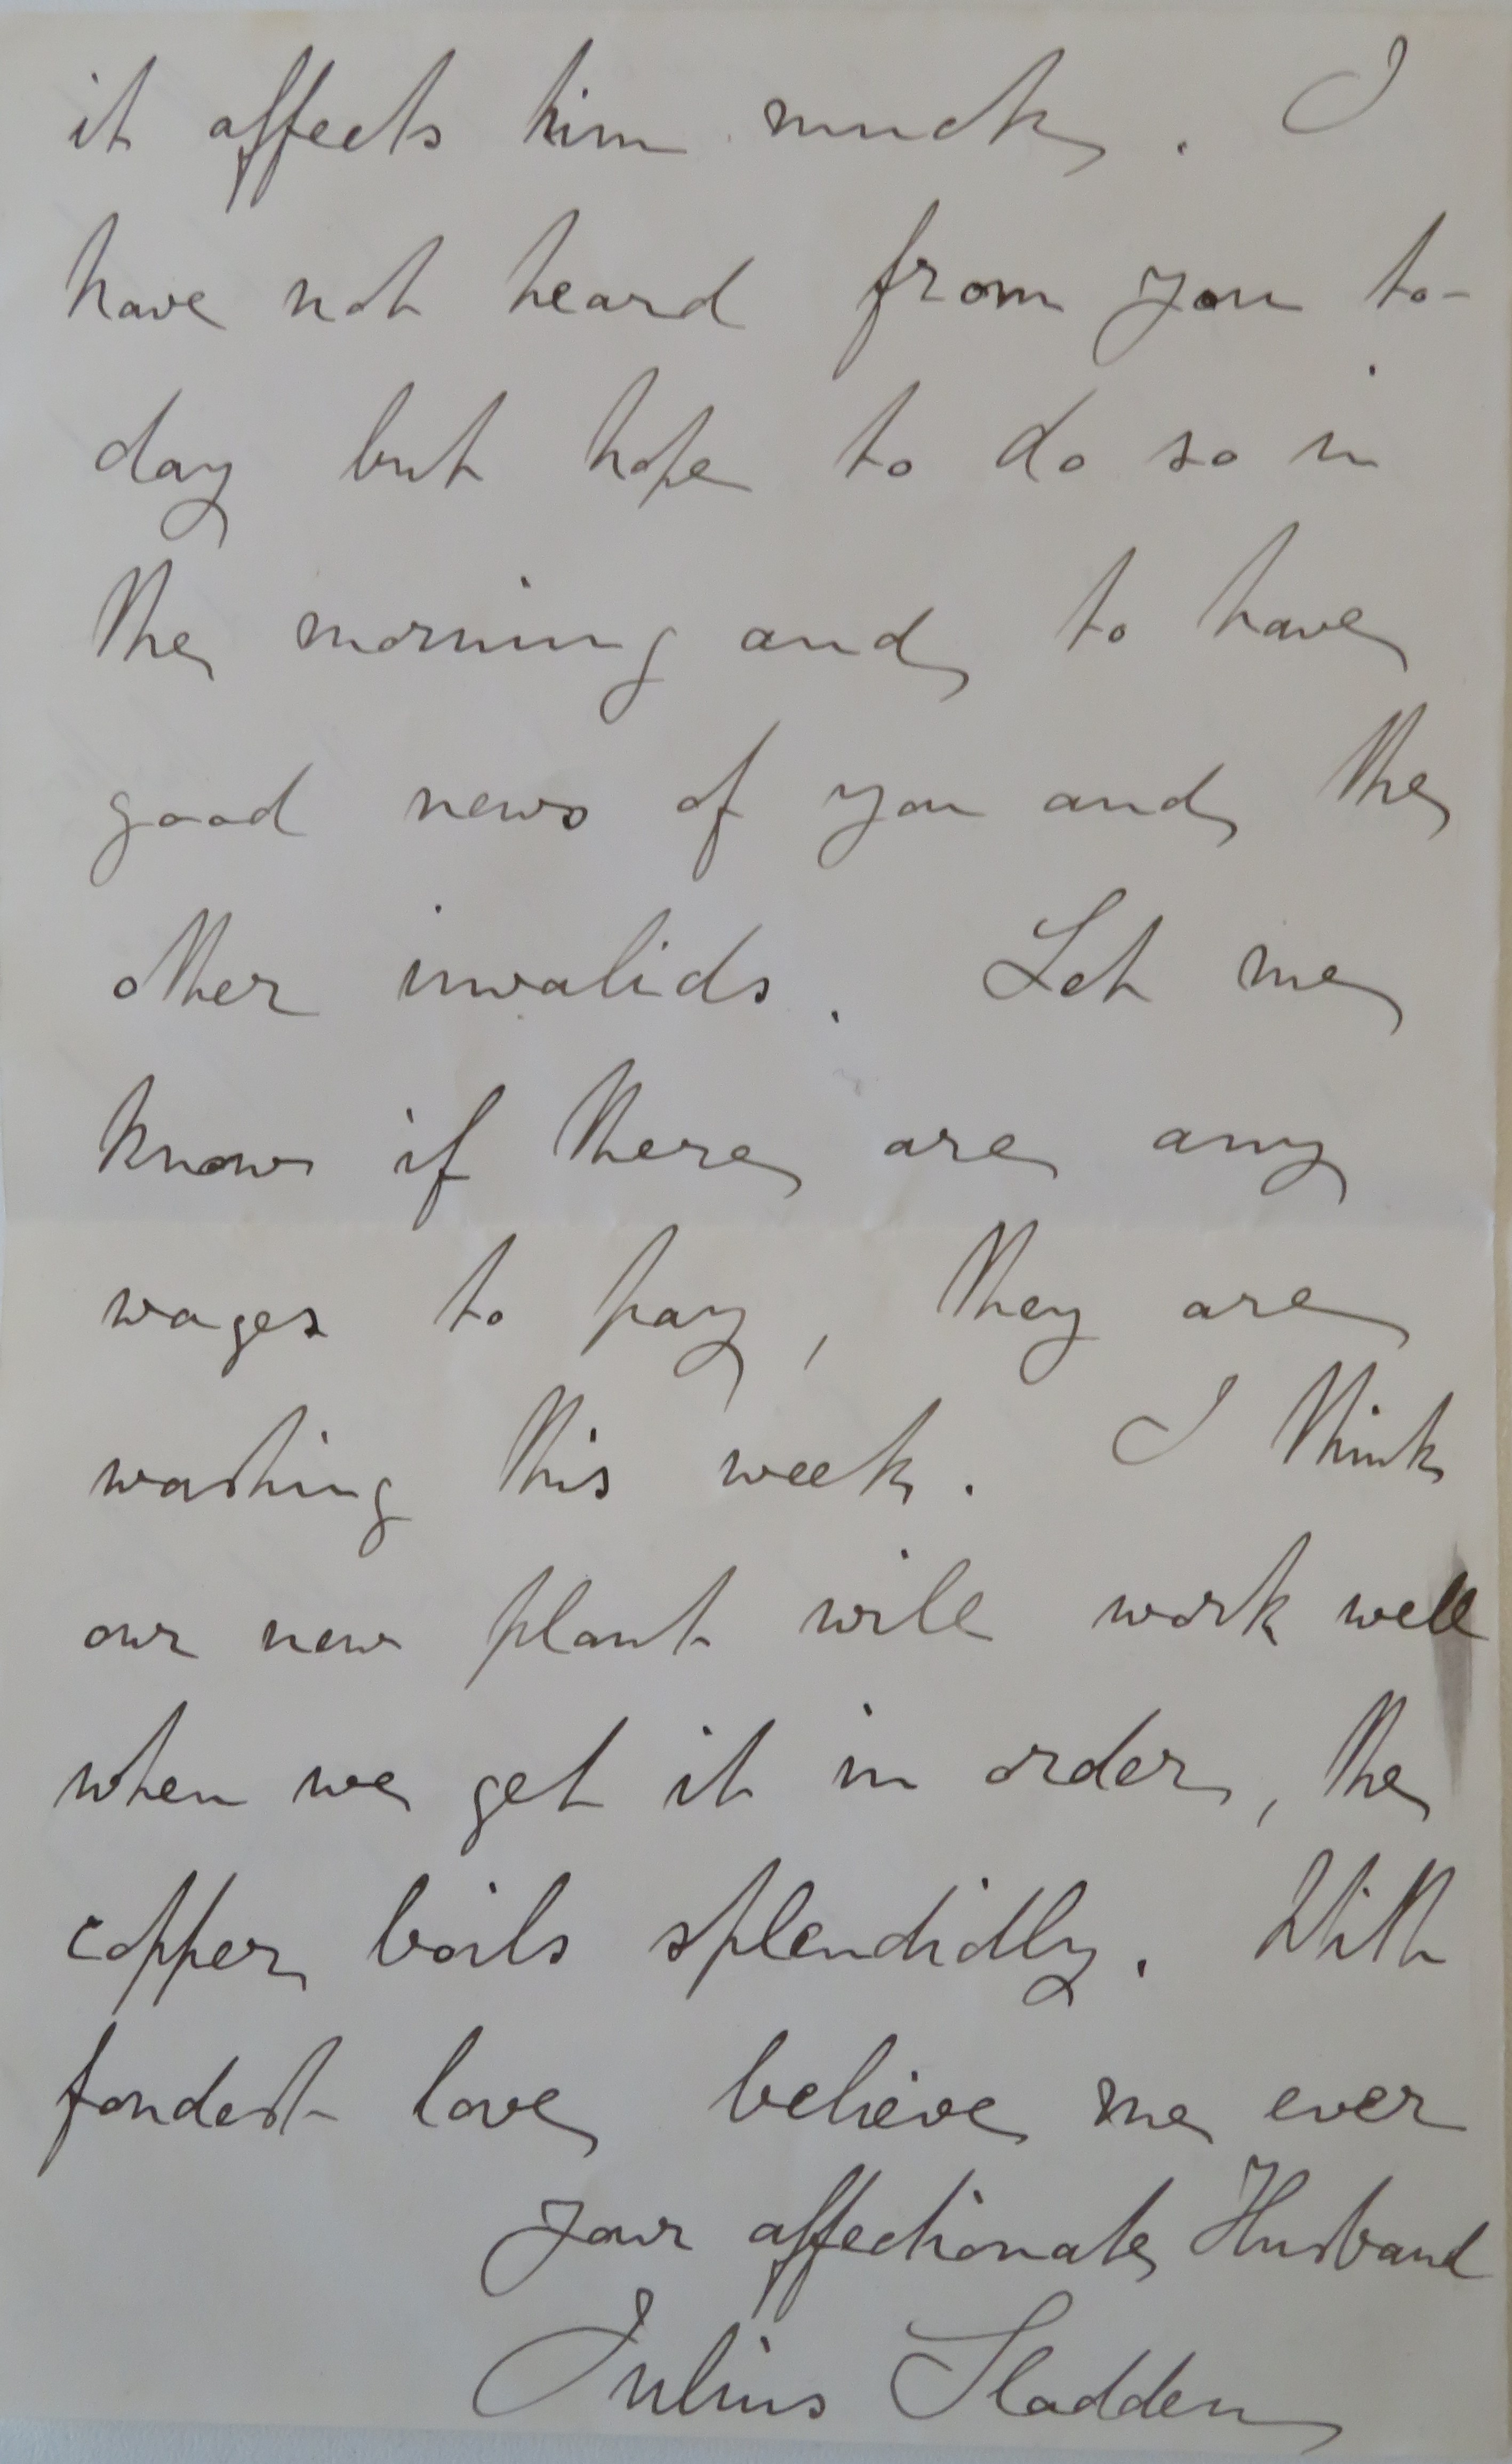 it affects him much. I
have not heard from you to-
day but hope to do so in
the morning and to have
good news of you and the
other invalids. Let me
know if there are any
wages to pay, they are
washing this week. I think
our new plant will work well
when we get it in order, the
copper boils splendidly. With
fondest love believe me ever
your affectionate Husband
Julius Sladden